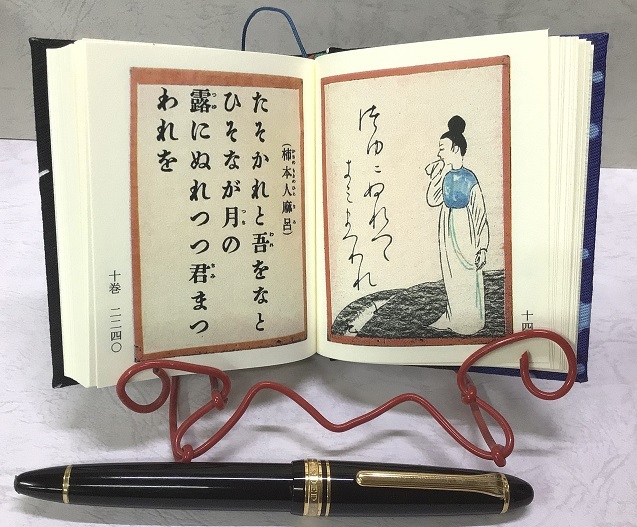 十四
つゆにぬれて
きみまつわれ
(柿本人麻呂)
たそかれと吾をなと
ひそなが月の
露にぬれつつ君まつ
われを
十巻 二二四〇